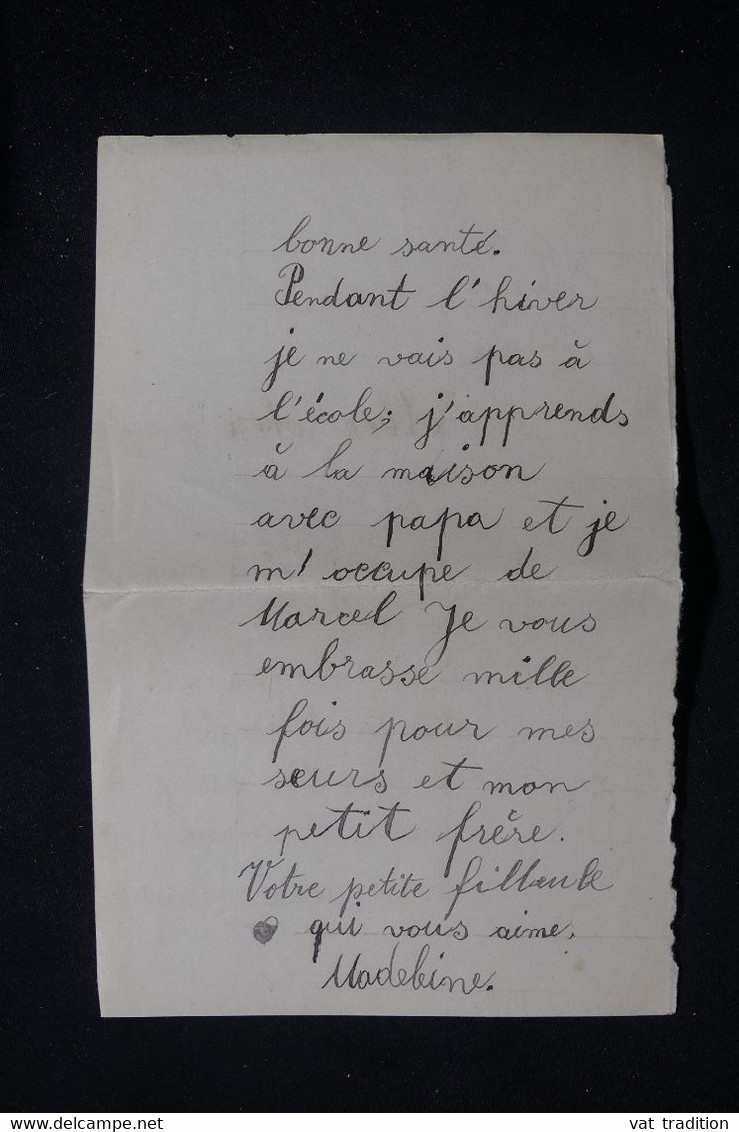 bonne santé.
Pendant l'hiver
je ne vais pas à
l'école; j'apprends
à la maison
avec papa et je
m'occupe de
Marcel Je vous
embrasse mille
fois pour mes
sœurs et mon
petit frère.
Votre petite filleule
qui vous aime.
Madeleine.
www.delcampe.net
vat tradition